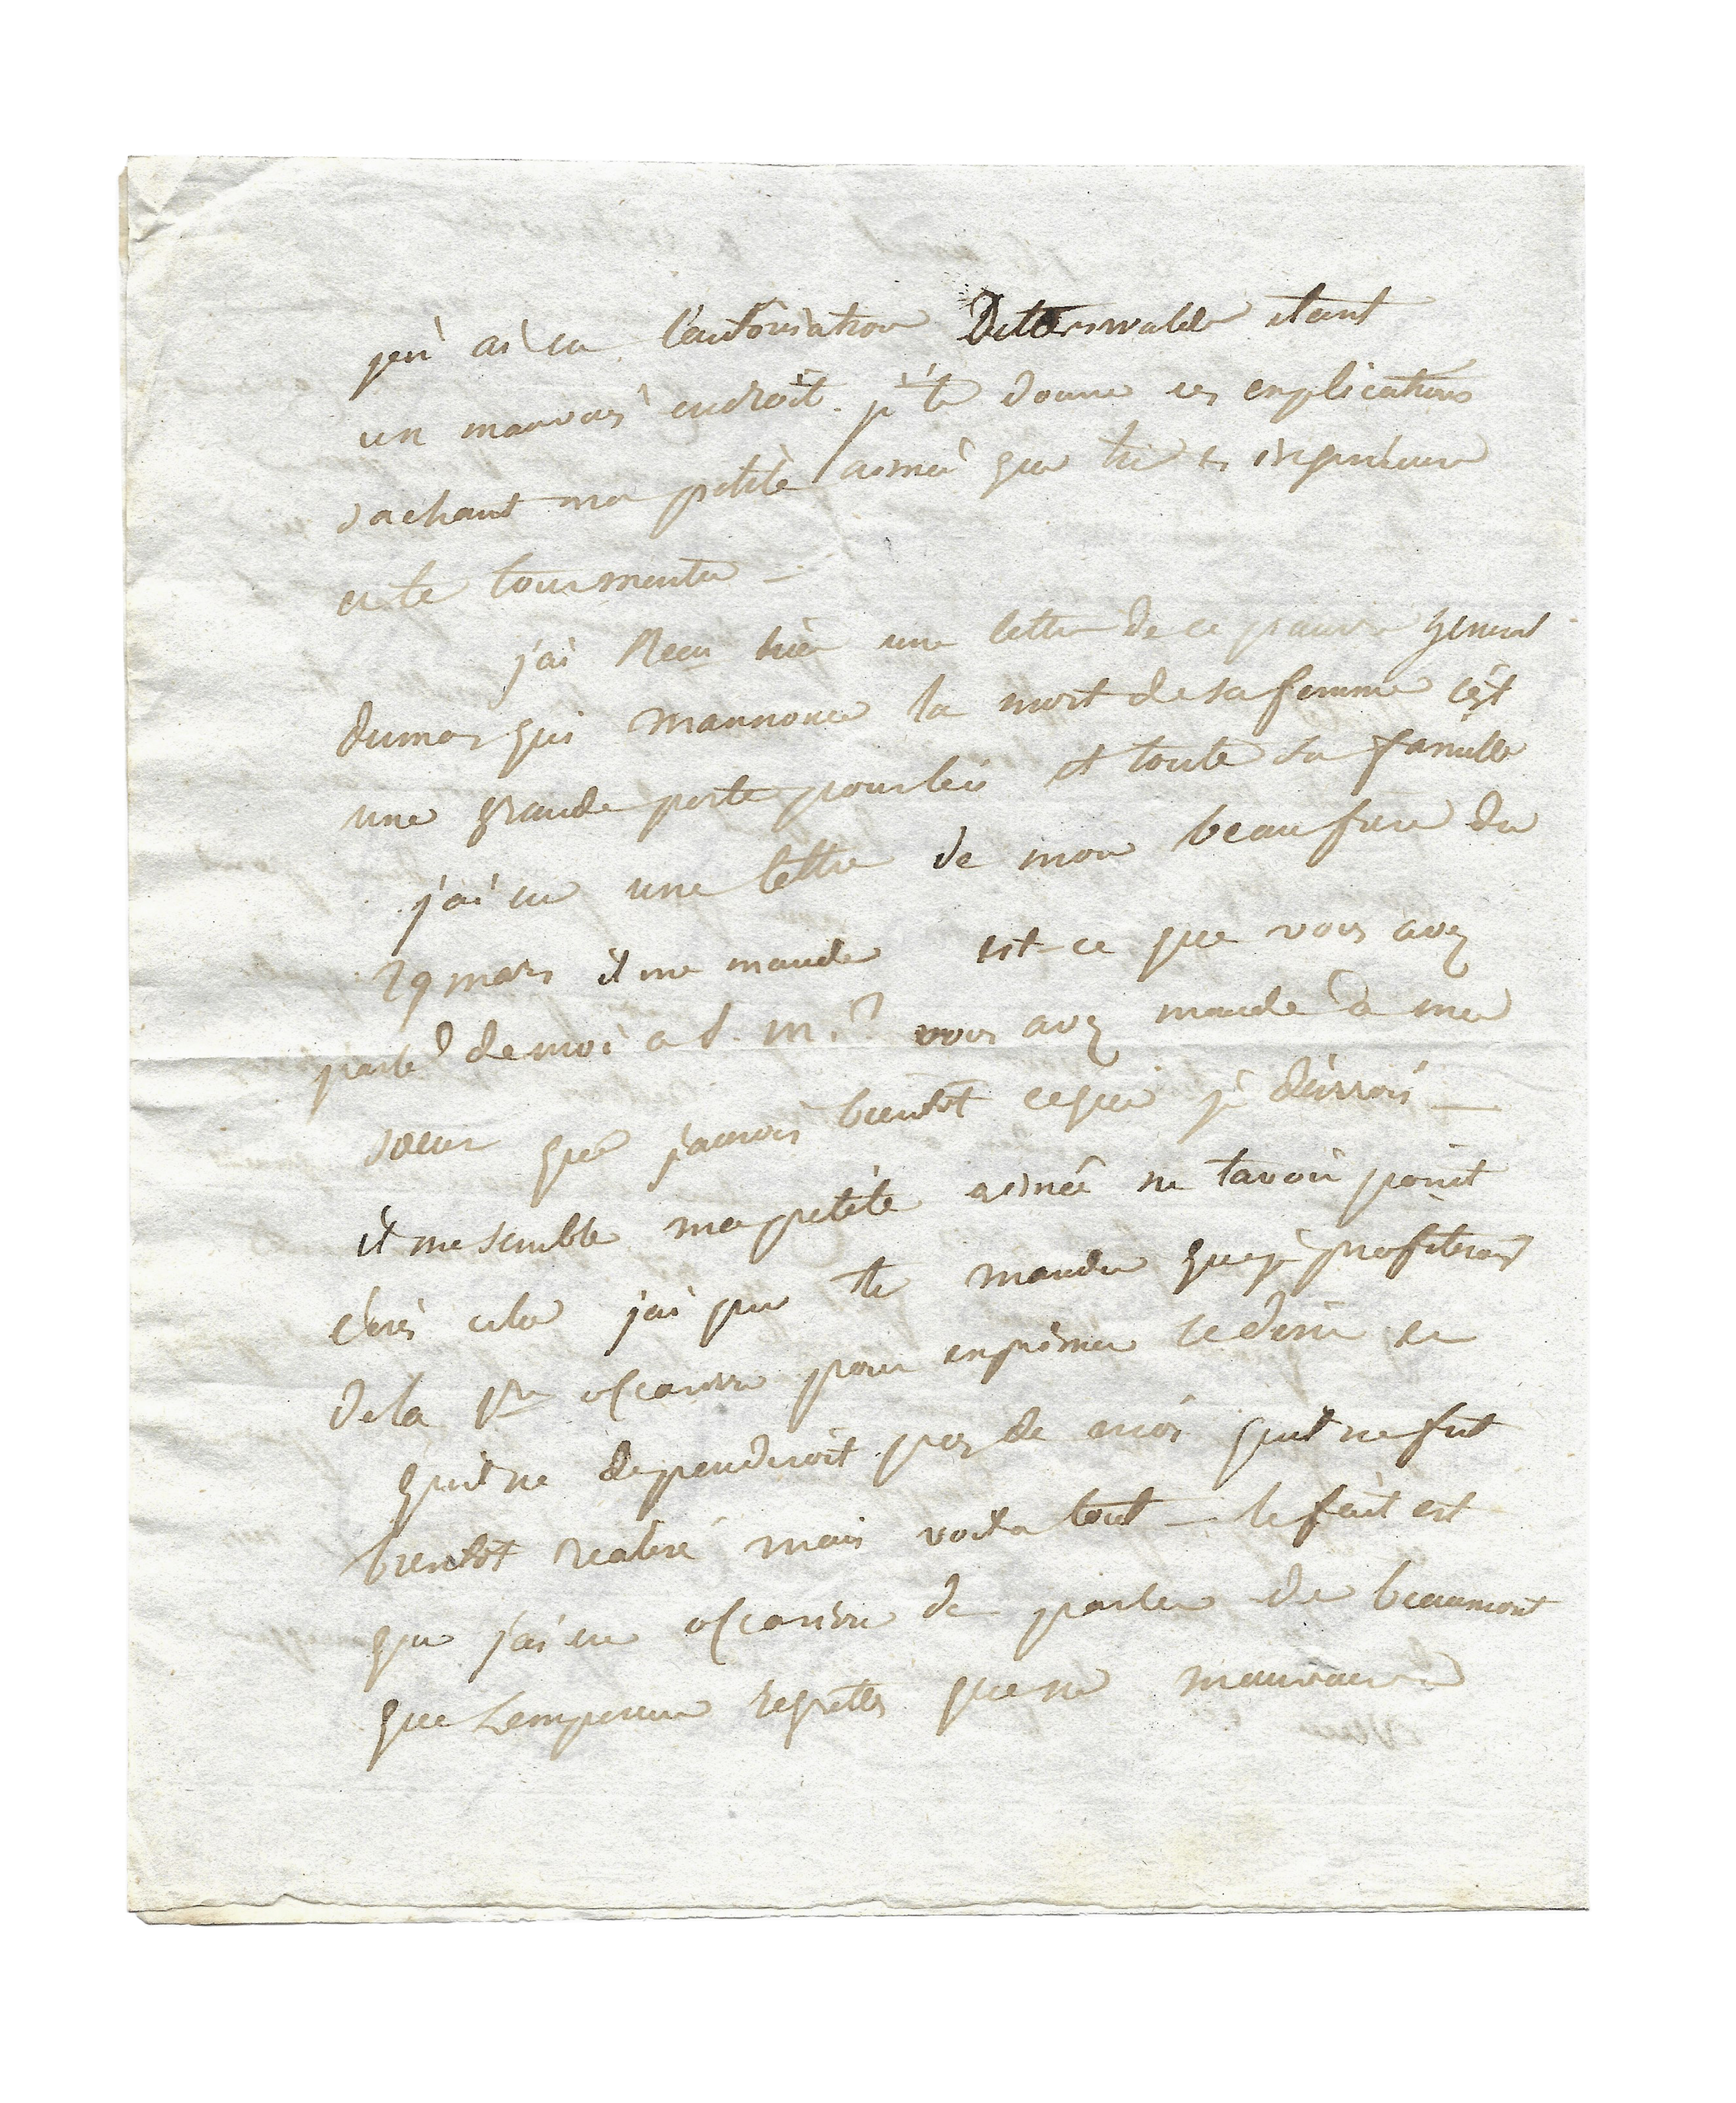 jen ai eu l'autorisation Deterswalde etant
un mauvais endroit. je te donne ces explications
sachant ma petite aimée que tu es
et te tourmenter —
j'ai Recu hier une lettre de ce pauvre general
dumas qui mannonce la mort de sa femme cest
une grande perte pour lui et toute sa famille
j'ai eu une lettre de mon beau frere du
29 mars il me mande est-ce que vous avez
parlé de moi a S. M.? vous avez mandé a ma
soeur que j'aurois bientot ce que je desirrois —
il me semble ma petite aimée ne tavoir point
ecris cela jai pu te mander que je profiterois
de la pre occasion pour exprimer ce desir et
quil ne dependroit pas de moi quil ne fut
bientot realisé mais voila tout — le fait est
que j'ai eu occasion de parler de beaumont
que Lempereur